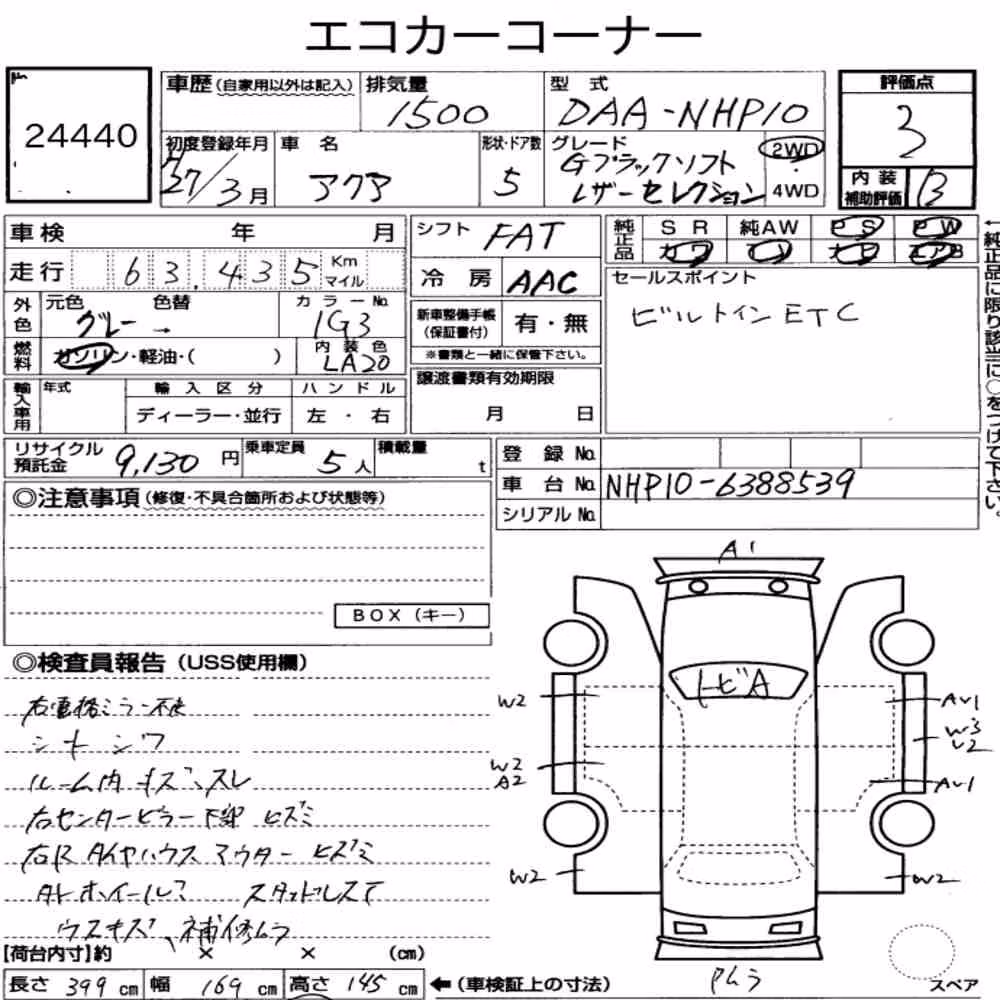 エコカーコーナー
24440
車歴(自家用以外は記入) 排気量 1500 型式 DAA-NHP10
評価点 3
初度登録年月 H27/3月 車名 アクア 形状・ドア数 5 グレード Gブラックソフトレザーセレクション 2WD 4WD
内装補助評価 B
車検 年 月
走行 63,435 Km マイル
シフト FAT
冷房 AAC
純正品 SR 純AW PS PW カワ エアB
←純正品に限り該当に○をつけて下さい。
外色 元色 グレー → 色替 カラーNo. 1G3
燃料 ガソリン・軽油・( ) 内装色 LA20
新車整備手帳(保証書付) 有・無
※書類と一緒に保管下さい。
セールスポイント
ビルトインETC
輸入車用 年式 輸入区分 ディーラー・並行 ハンドル 左・右
譲渡書類有効期限 月 日
リサイクル預託金 9,130円 乗車定員 5人 積載量 t
登録No.
車台No. NHP10-6388539
シリアルNo.
◎注意事項(修復・不具合箇所および状態等)
BOX(キー)
◎検査員報告(USS使用欄)
右電格ミラー不良
シートシワ
ルーム内キズ、スレ
右センターピラー下部ヒズミ
右Rタイヤハウスアウターヒズミ
スタッドレスT
ウスキズ、補修ムラ
A1
トビA
W2
W2
A2
W2
AU1
W3
U2
AU1
W2
Pムラ
スペア
【荷台内寸】約 × × (cm)
長さ 399 cm 幅 169 cm 高さ 145 cm ←(車検証上の寸法)